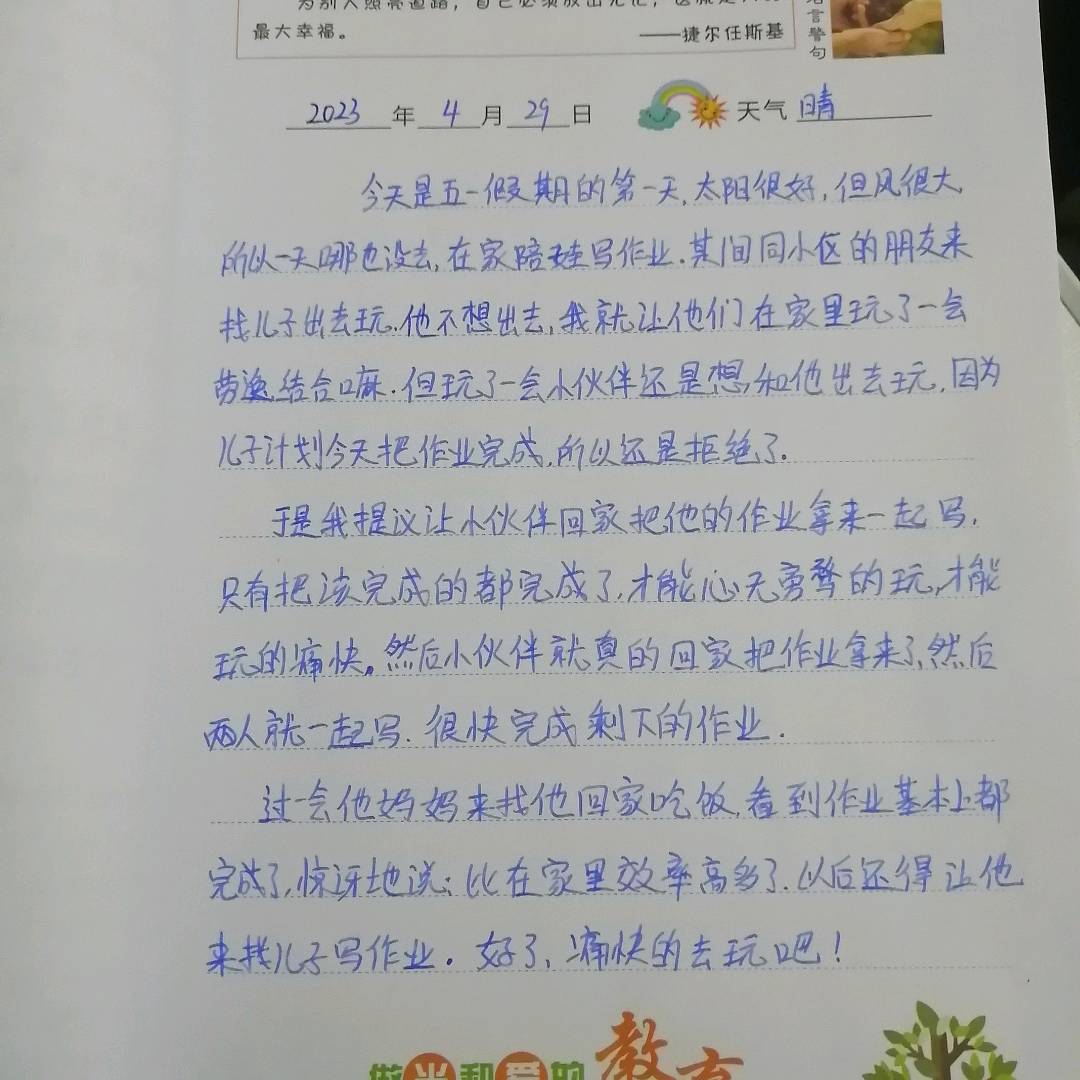 最大幸福。
——捷尔任斯基
名言警句
2023年4月29日 天气 晴
今天是五一假期的第一天,太阳很好,但风很大,
所以一天哪也没去,在家陪娃写作业.某间同小区的朋友来
找儿子出去玩.他不想出去,我就让他们在家里玩了一会
劳逸结合嘛.但玩了一会小伙伴还是想和他出去玩,因为
儿子计划今天把作业完成,所以还是拒绝了.
于是我提议让小伙伴回家把他的作业拿来一起写,
只有把该完成的都完成了,才能心无旁骛的玩,才能
玩的痛快。然后小伙伴就真的回家把作业拿来了,然后
两人就一起写.很快完成剩下的作业.
过一会他妈妈来找他回家吃饭,看到作业基本上都
完成了,惊讶地说:比在家里效率高多了.以后还得让他
来找儿子写作业.好了,痛快的去玩吧!
做光和爱的教育